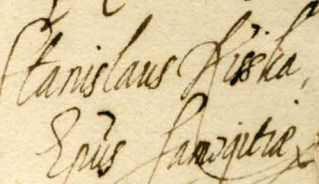 Stanislaus Kisska,
Epũs Samogitiæ